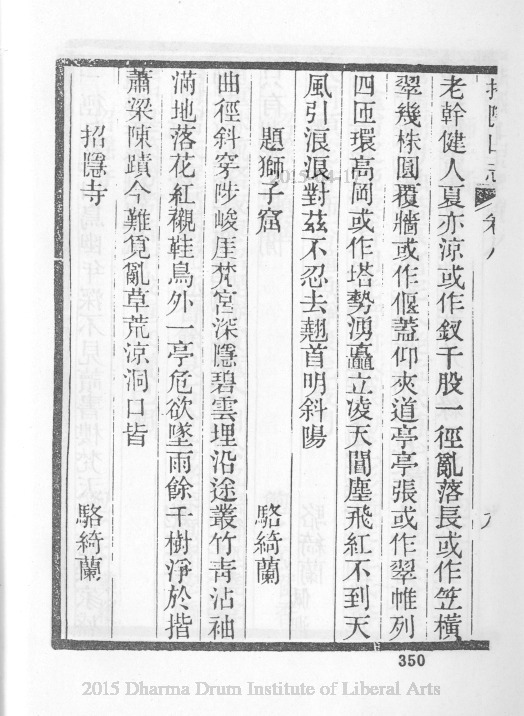 招隱山志 卷八 九
老幹健人夏亦涼或作釵千股一徑亂落長或作笠橫
翠幾株圓覆牆或作偃蓋仰夾道亭亭張或作翠帷列
四匝環高岡或作塔勢湧矗立凌天閶塵飛紅不到天
風引浪浪對茲不忍去翹首明斜陽
題獅子窟 駱綺蘭
曲徑斜穿陟峻厓梵宮深隱碧雲埋沿途叢竹青沾袖
滿地落花紅襯鞋鳥外一亭危欲墜雨餘千樹淨於揩
蕭梁陳蹟今難覓亂草荒涼洞口皆
招隱寺 駱綺蘭
350
2015 Dharma Drum Institute of Liberal Arts